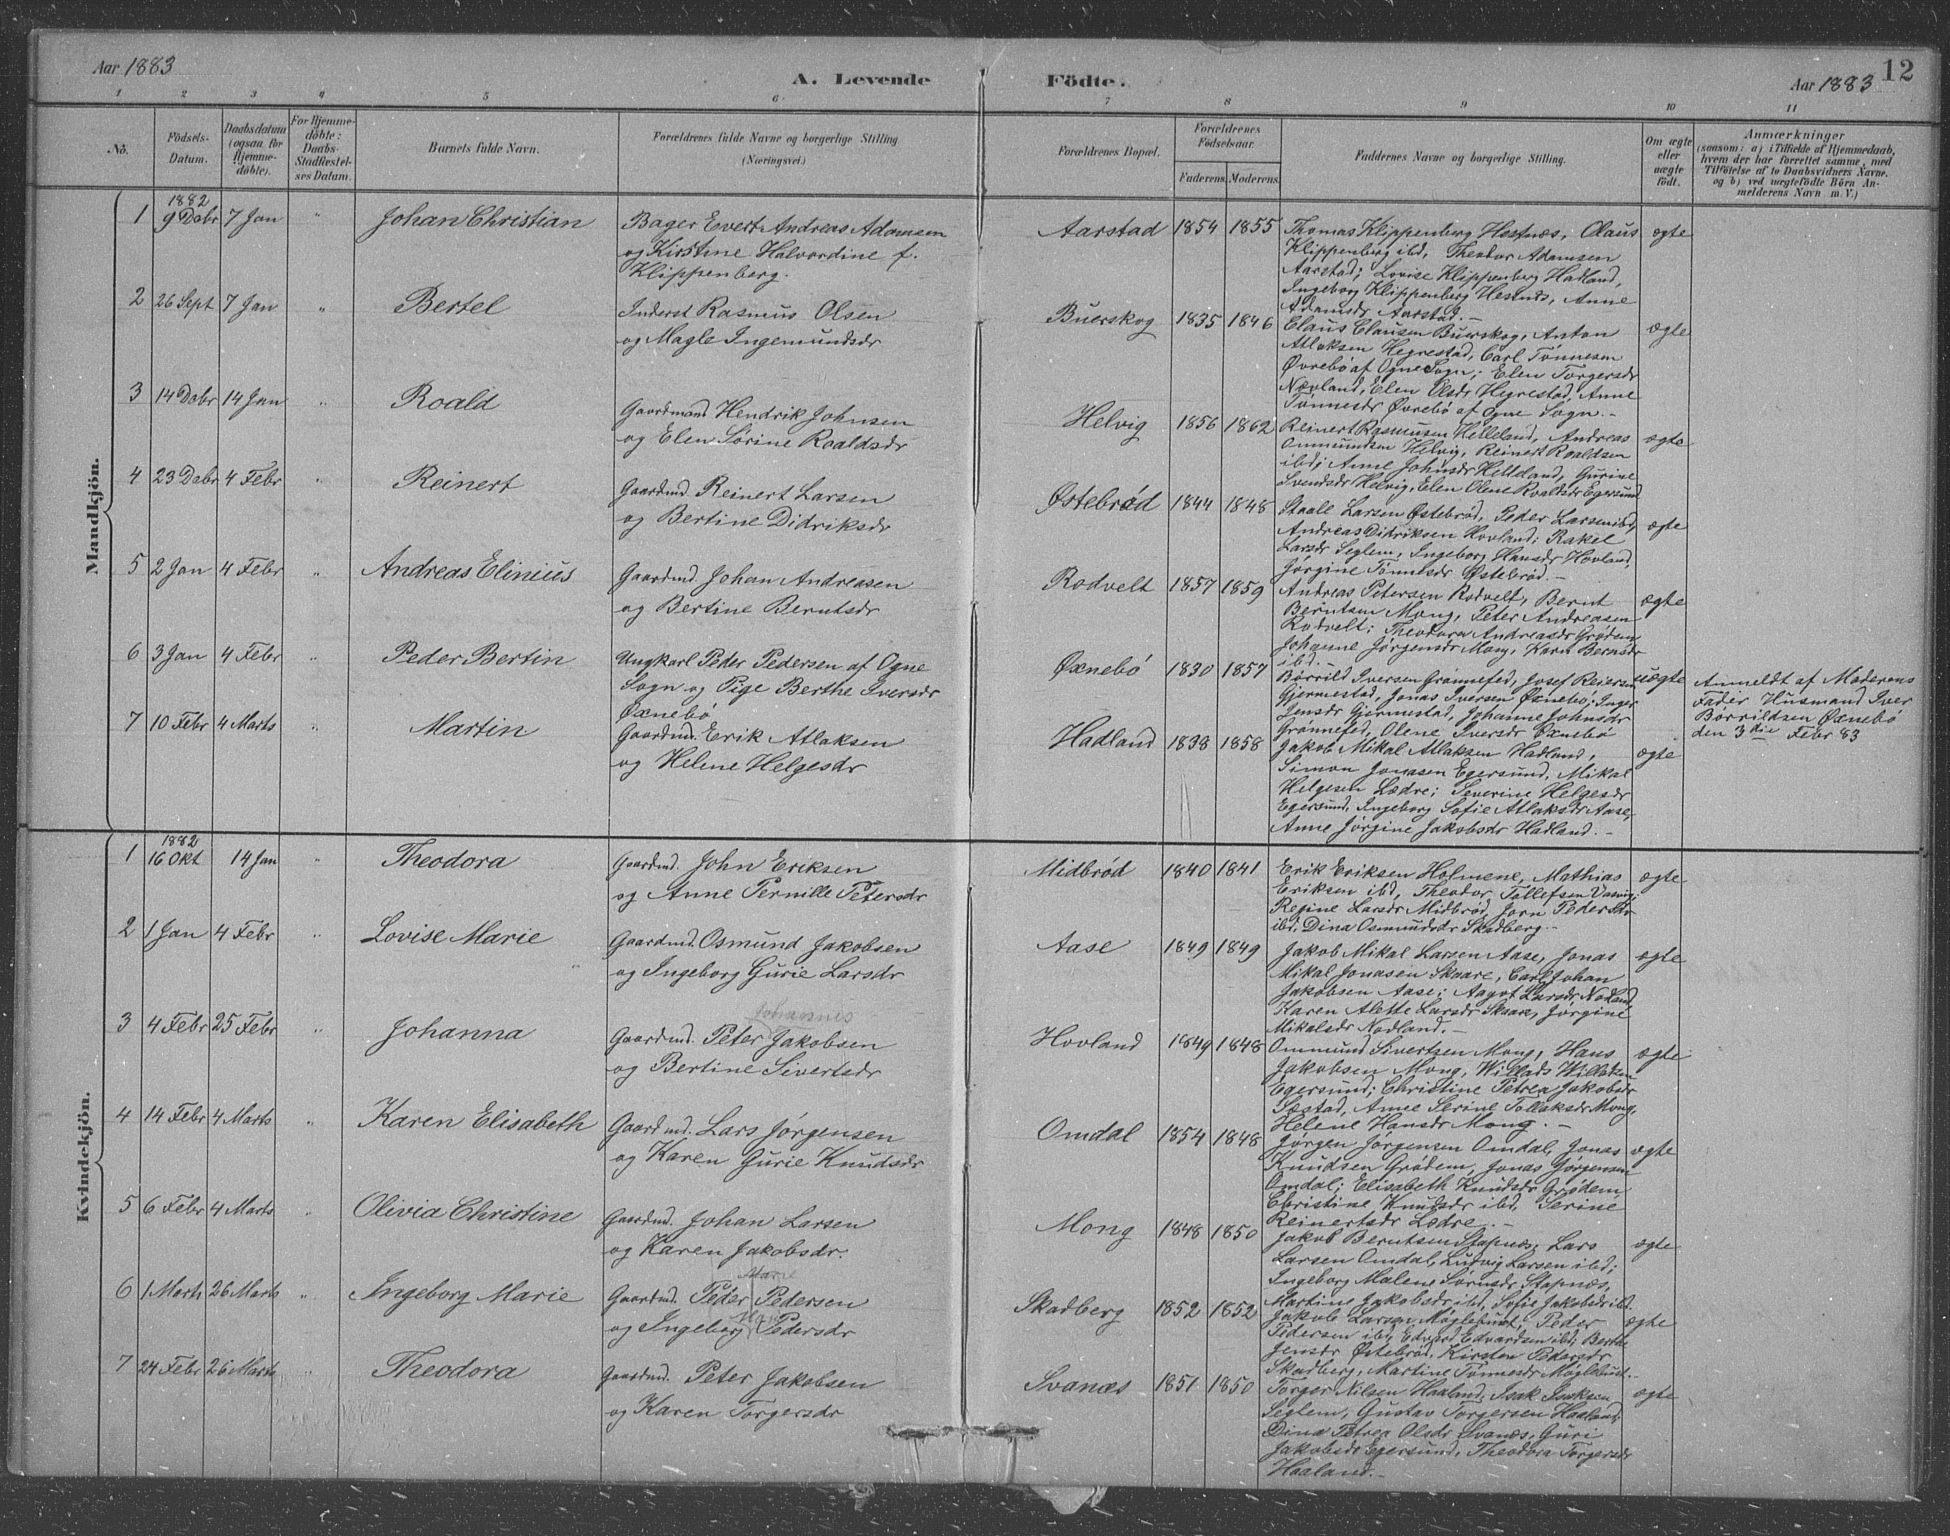 Aar 1883 A. Levende Födte. Aar 1883 12
1 2 3 4 5 6 7 8 9 10 11
No.
Födsels-
Datum.
Daabsdatum
(ogsaa for
Hjemme-
döbte).
For Hjemme-
döbte:
Daabs-
Stadfæstel-
ses Datum.
Barnets fulde Navn.
Forældrenes fulde Navne og borgerlige Stilling
(Næringsvei.)
Forældrenes Bopæl.
Forældrenes
Födselsaar.
Faderens. Moderens.
Faddernes Navne og borgerlige Stilling.
Om ægte
eller
uægte
födt.
Anmærkninger
(saasom: a) i Tilfælde af Hjemmedaab,
hvem der har forrettet samme, med
Tilföielse af to Daabsvidners Navne.
og b) ved uægtefödte Börn An-
melderens Navn m.V.)
Mandkjön.
1882
1 9 Debr 7 Jan " Johan Christian
Bager Evert Andreas Adamsen
og Kirstine Halvardine f.
Klippenberg.
Aarstad 1854 1855
Thomas Klippenberg Hestnes, Olaus
Klippenberg ibd, Theodor Adamsen
Aarstad; Lovise Klippenberg Hadland,
Ingeborg Klippenberg Hestnes, Anne
Adamsdr Aarstad.-
ægte
2 26 Sept 7 Jan " Bertel
Inderst Rasmus Olsen
og Magle Ingemundsdr
Buerskog 1835 1846
Claus Clausen Buerskog, Anton
Atlaksen Hegrestad, Carl Tønnesen
Øvrebø af Ogne Sogn; Elen Torgersdr
Nævland, Elen Olsdr Hegrestad, Anne
Tønnesdr Øvrebø af Ogne Sogn.-
ægte
3 14 Debr 14 Jan " Roald
Gaardmand Hendrik Johnsen
og Elen Sørine Roaldsdr
Helvig 1856 1862
Reinert Rasmusen Helleland, Andreas
Ommundsen Helvig, Reinert Roaldsen
ibd; Anne Johnsdr Helleland, Gurine
Svendsdr Helvig, Elen Olene Roaldsdr Egersund
ægte
4 23 Debr 4 Febr " Reinert
Gaardmd. Reinert Larsen
og Bertine Didriksdr
Østebrød 1844 1848
Staale Larsen Østebrød, Peder Larsen ibd,
Andreas Didriksen Hovland; Rakel
Larsdr Seglem, Ingeborg Hansdr Hovland,
Jørgine Tønnesdr Østebrød.-
ægte
5 2 Jan 4 Febr " Andreas Elinius
Gaardmd. Johan Andreasen
og Bertine Berntsdr
Rodvelt 1857 1859
Andreas Petersen Rodvelt, Bernt
Berntsen Mong, Peter Andreasen
Rodvelt; Theodora Andreasdr Grødem,
Johanne Jørgensdr Mong, Karn Berntsdr
ibd.-
ægte
6 3 Jan 4 Febr " Peder Bertin
Ungkarl Peder Pedersen af Ogne
Sogn og Pige Berthe Iversdr
Øxnebø
Øxnebø 1830 1857
Børrild Iversen Grønnefed, Josef Reiersen
Gjermestad, Jonas Iversen Øxnebø; Inger
Jensdr Gjermestad, Johanne Johnsdr
Grønnefed, Olene Iversdr Øxnebø
uægte
Anmeldt af Moderens
Fader Husmand Iver
Børrildsen Øxnebø
den 3die Febr 83
7 10 Febr 4 Marts " Martin
Gaardmd. Erik Atlaksen
og Helene Helgesdr
Hadland 1838 1858
Jakob Mikal Atlaksen Hadland,
Simon Jonasen Egersund, Mikal
Helgesen Lædre; Severine Helgesdr
Egersund, Ingeborg Sofie Atlaksdr Aase,
Anne Jørgine Jakobsdr Hadland.-
ægte
Kvindekjön.
1882
1 16 Okt 14 Jan " Theodora
Gaardmd. John Eriksen
og Anne Pernille Petersdr
Midbrød 1840 1841
Erik Eriksen Holmene, Mathias
Eriksen ibd, Theodor Tollefsen Vasvig;
Regine Larsdr Midbrød, Jorn Pedersdr
ibd, Dina Osmundsdr Skadberg.-
ægte
2 1 Jan 4 Febr " Lovise Marie
Gaardmd. Osmund Jakobsen
og Ingeborg Gurie Larsdr
Aase 1849 1849
Jakob Mikal Larsen Aase, Jonas
Mikal Jonasen Skaare, Carl Johan
Jakobsen Aase; Aagot Larsdr Nodland,
Karen Alette Larsdr Skaare, Jørgine
Mikalsdr Nodland.-
ægte
3 4 Febr 25 Febr " Johanna
Johannes
Gaardmd. Peter Jakobsen
og Bertine Sivertsdr
Hovland 1849 1848
Ommund Sivertsen Mong, Hans
Jakobsen Mong, Willads Willaksen
Egersund; Christine Petrea Jakobsdr
Sæstad, Anne Serine Tollaksdr Mong,
Helene Hansdr Mong.-
ægte
4 14 Febr 4 Marts " Karen Elisabeth
Gaardmd. Lars Jørgensen
og Karen Gurie Knudsdr
Omdal 1854 1848
Jørgen Jørgensen Omdal, Jonas
Knudsen Grødem, Jonas Jørgensen
Omdal; Elisabeth Knudsdr Grødem
Christine Knudsdr ibd, Serine
Reinertsdr Lædre.-
ægte
5 6 Febr 4 Marts " Olivia Christine
Gaardmd. Johan Larsen
og Karen Jakobsdr.
Mong 1848 1850
Jakob Berntsen Stapnes, Lars
Larsen Omdal, Ludvig Larsen ibd;
Ingeborg Malene Sørnsdr Stapnæs,
Martine Jakobsdr ibd, Sofie Jakobsdr ibd.
ægte
6 1 Marts 26 Marts " Ingeborg Marie
Marie
Gaardmd. Peder Pedersen
og Ingeborg Pedersdr
Skadberg 1852 1852
Jakob Larsen Møglebust, Peder
Pedersen ibd, Edvard Edvardsen ibd; Berthe
Jensdr Østebrød, Kirsten Pedersdr
Skadberg, Martine Tønnesdr Møglebust.-
ægte
7 24 Febr 26 Marts " Theodora
Gaardmd. Peter Jakobsen
og Karen Torgersdr
Svanæs 1851 1850
Torger Nilsen Haaland, Isak Isaksen
Seglem, Gustav Torgersen Haaland;
Dina Petrea Olsdr Svanæs, Guri
Jakobsdr Egersund, Theodora Torgersdr
Haaland.-
ægte